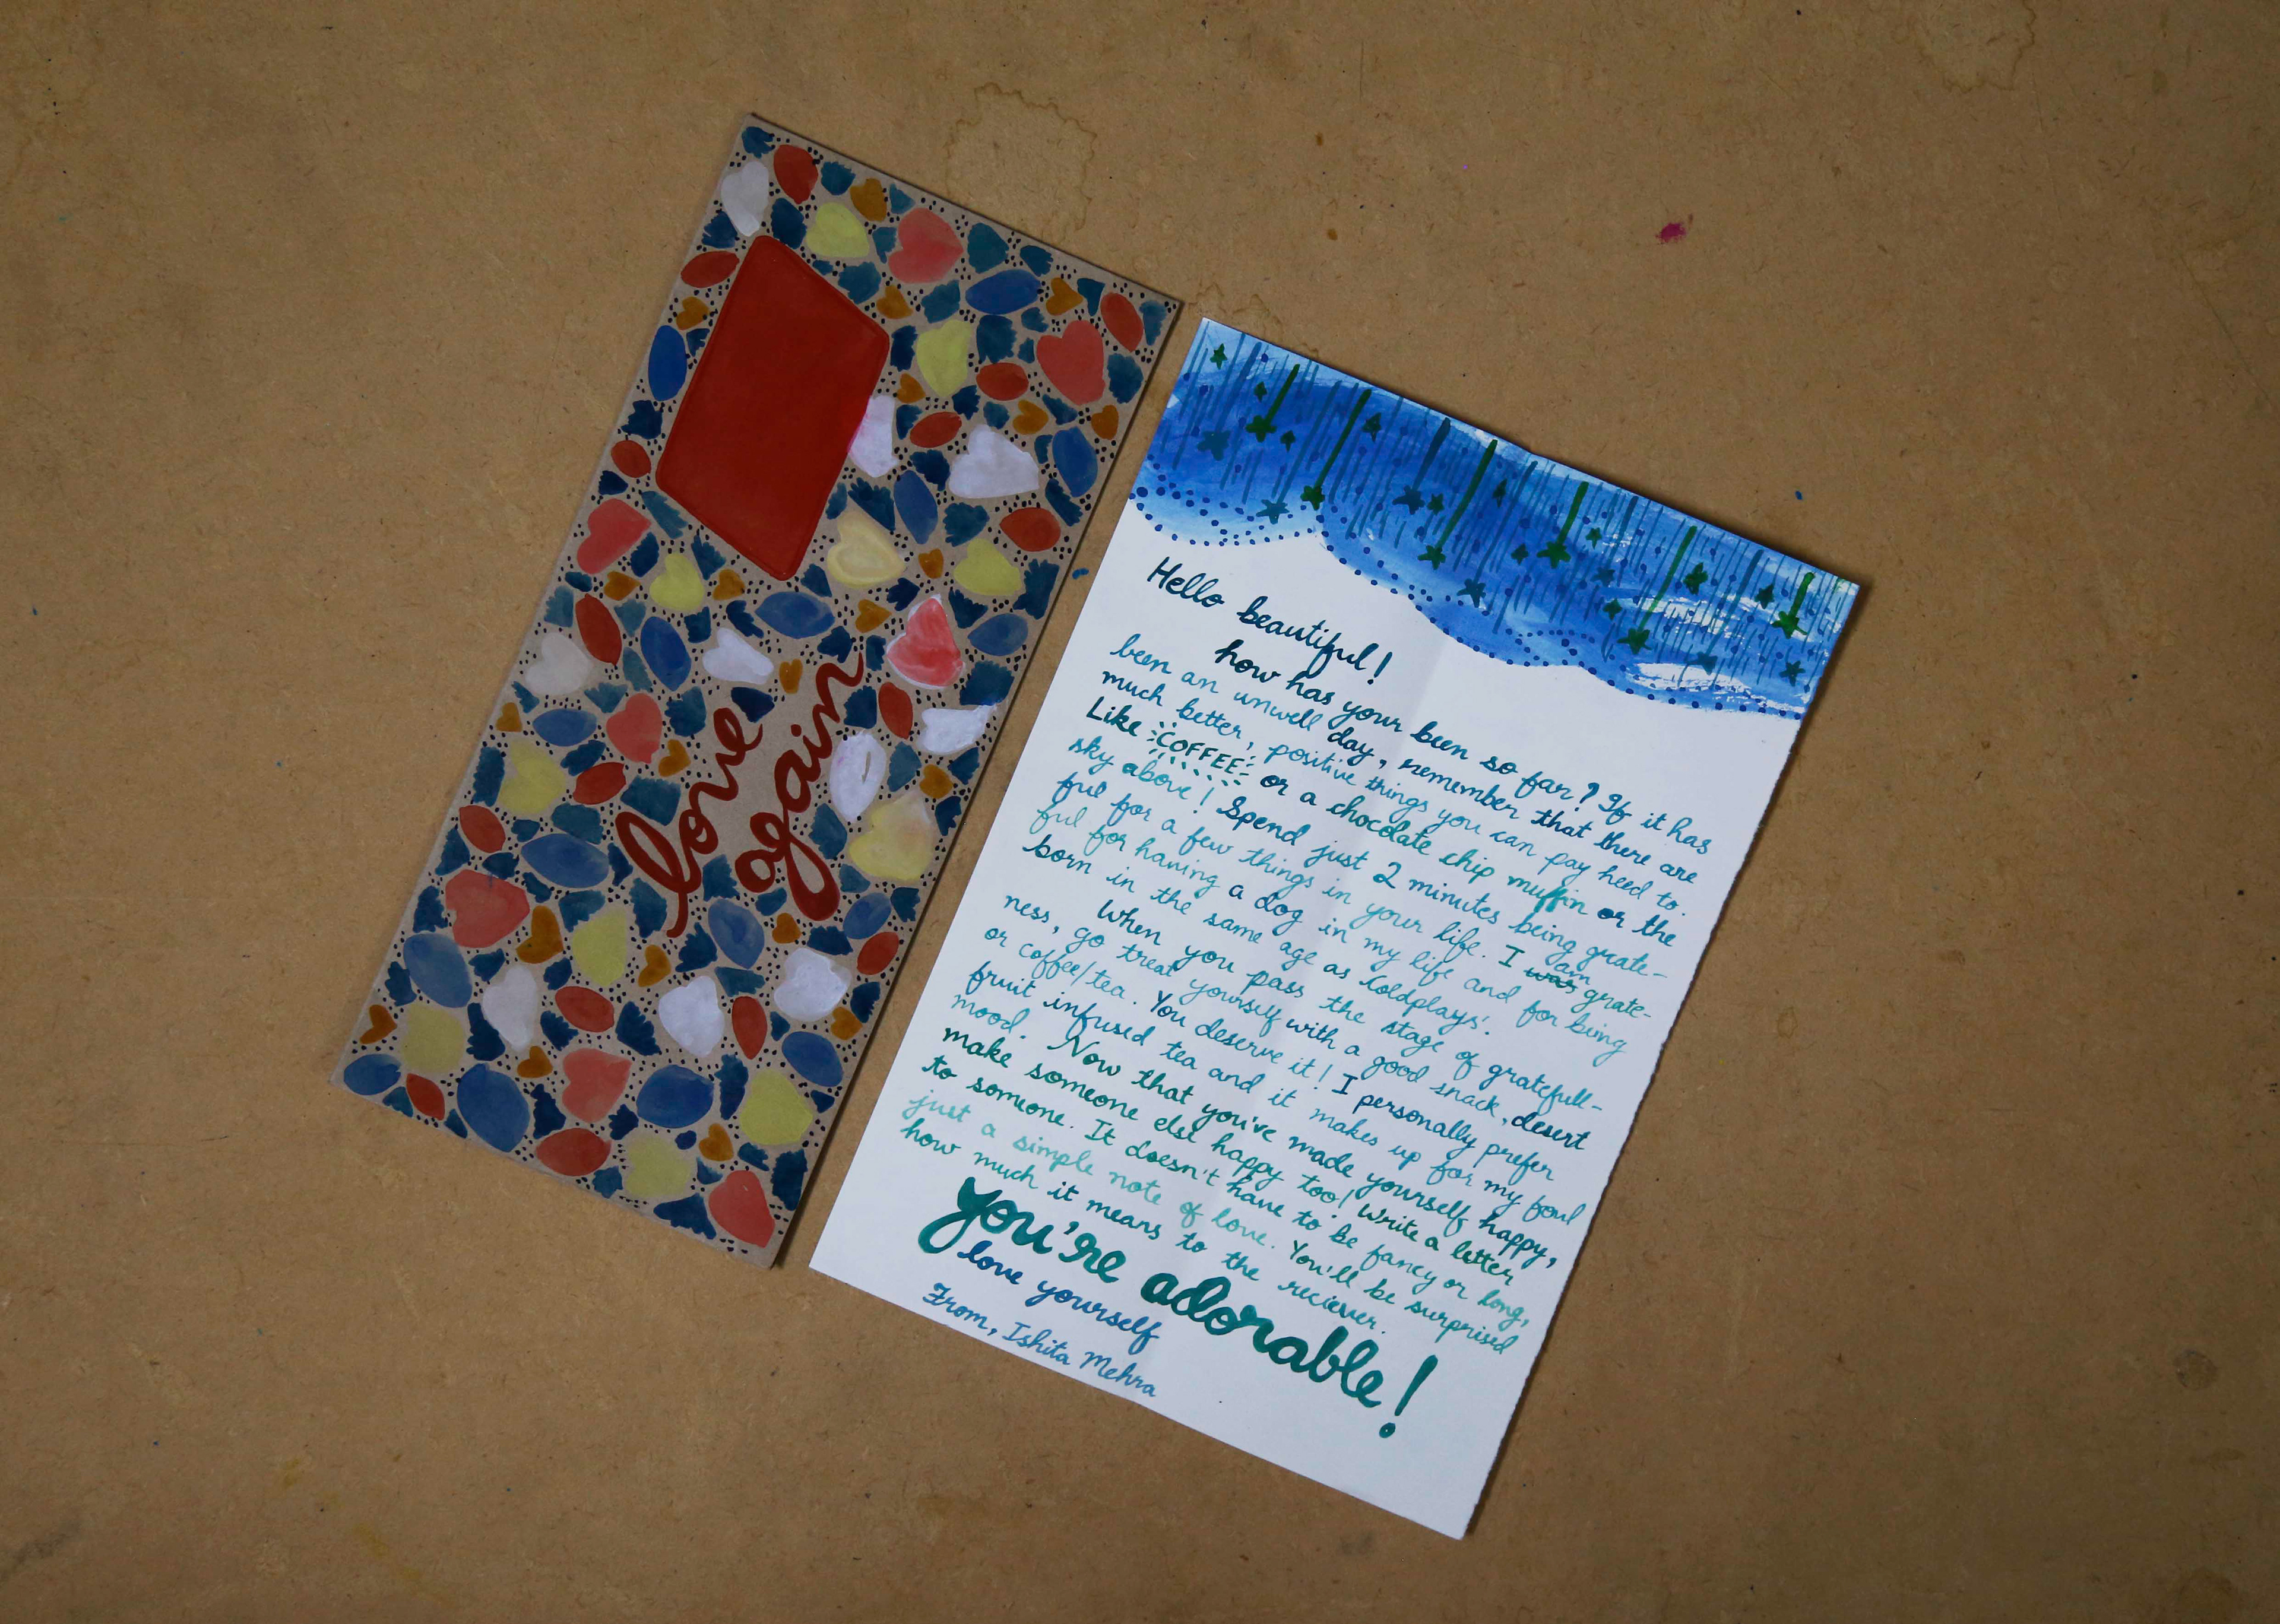 love
again
Hello beautiful!
how has your been so far? If it has
been an unwell day, remember that there are
much better, positive things you can pay heed to.
Like COFFEE or a chocolate chip muffin or the
sky above! Spend just 2 minutes being grate-
ful for a few things in your life. I was am grate-
ful for having a dog in my life and for being
born in the same age as Coldplays'.
When you pass the stage of gratefull-
ness, go treat yourself with a good snack, desert
or coffee/tea. You deserve it! I personally prefer
fruit infused tea and it makes up for my foul
mood. Now that you've made yourself happy,
make someone else happy too! Write a letter
to someone. It doesn't have to be fancy or long,
just a simple note of love. You'll be surprised
how much it means to the reciever.
you're adorable!
love yourself
From, Ishita Mehra